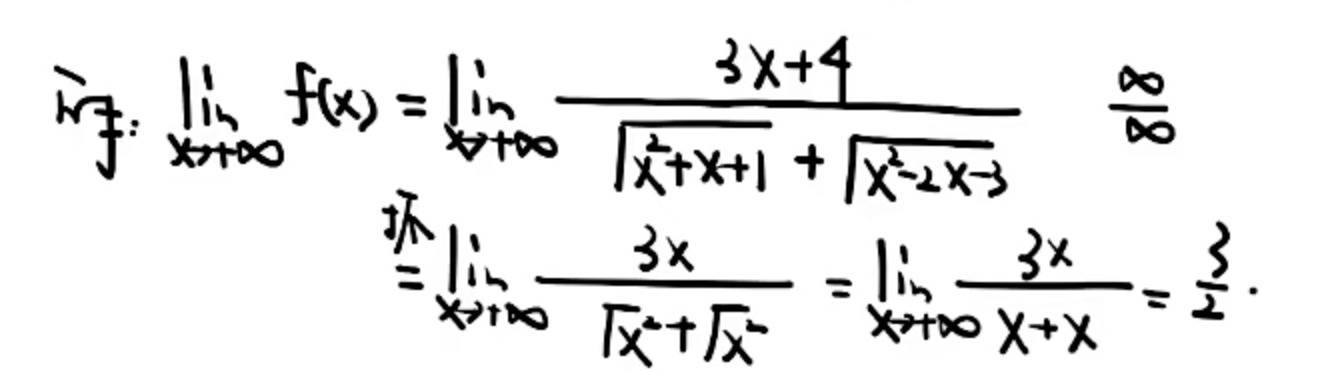 lim x→+∞ f(x) = lim x→+∞ (3x+4)/(√(x²+x+1) + √(x²-2x-3)) ∞/∞
= lim x→+∞ 3x/(√x²+√x²) = lim x→+∞ 3x/(x+x) = 3/2.